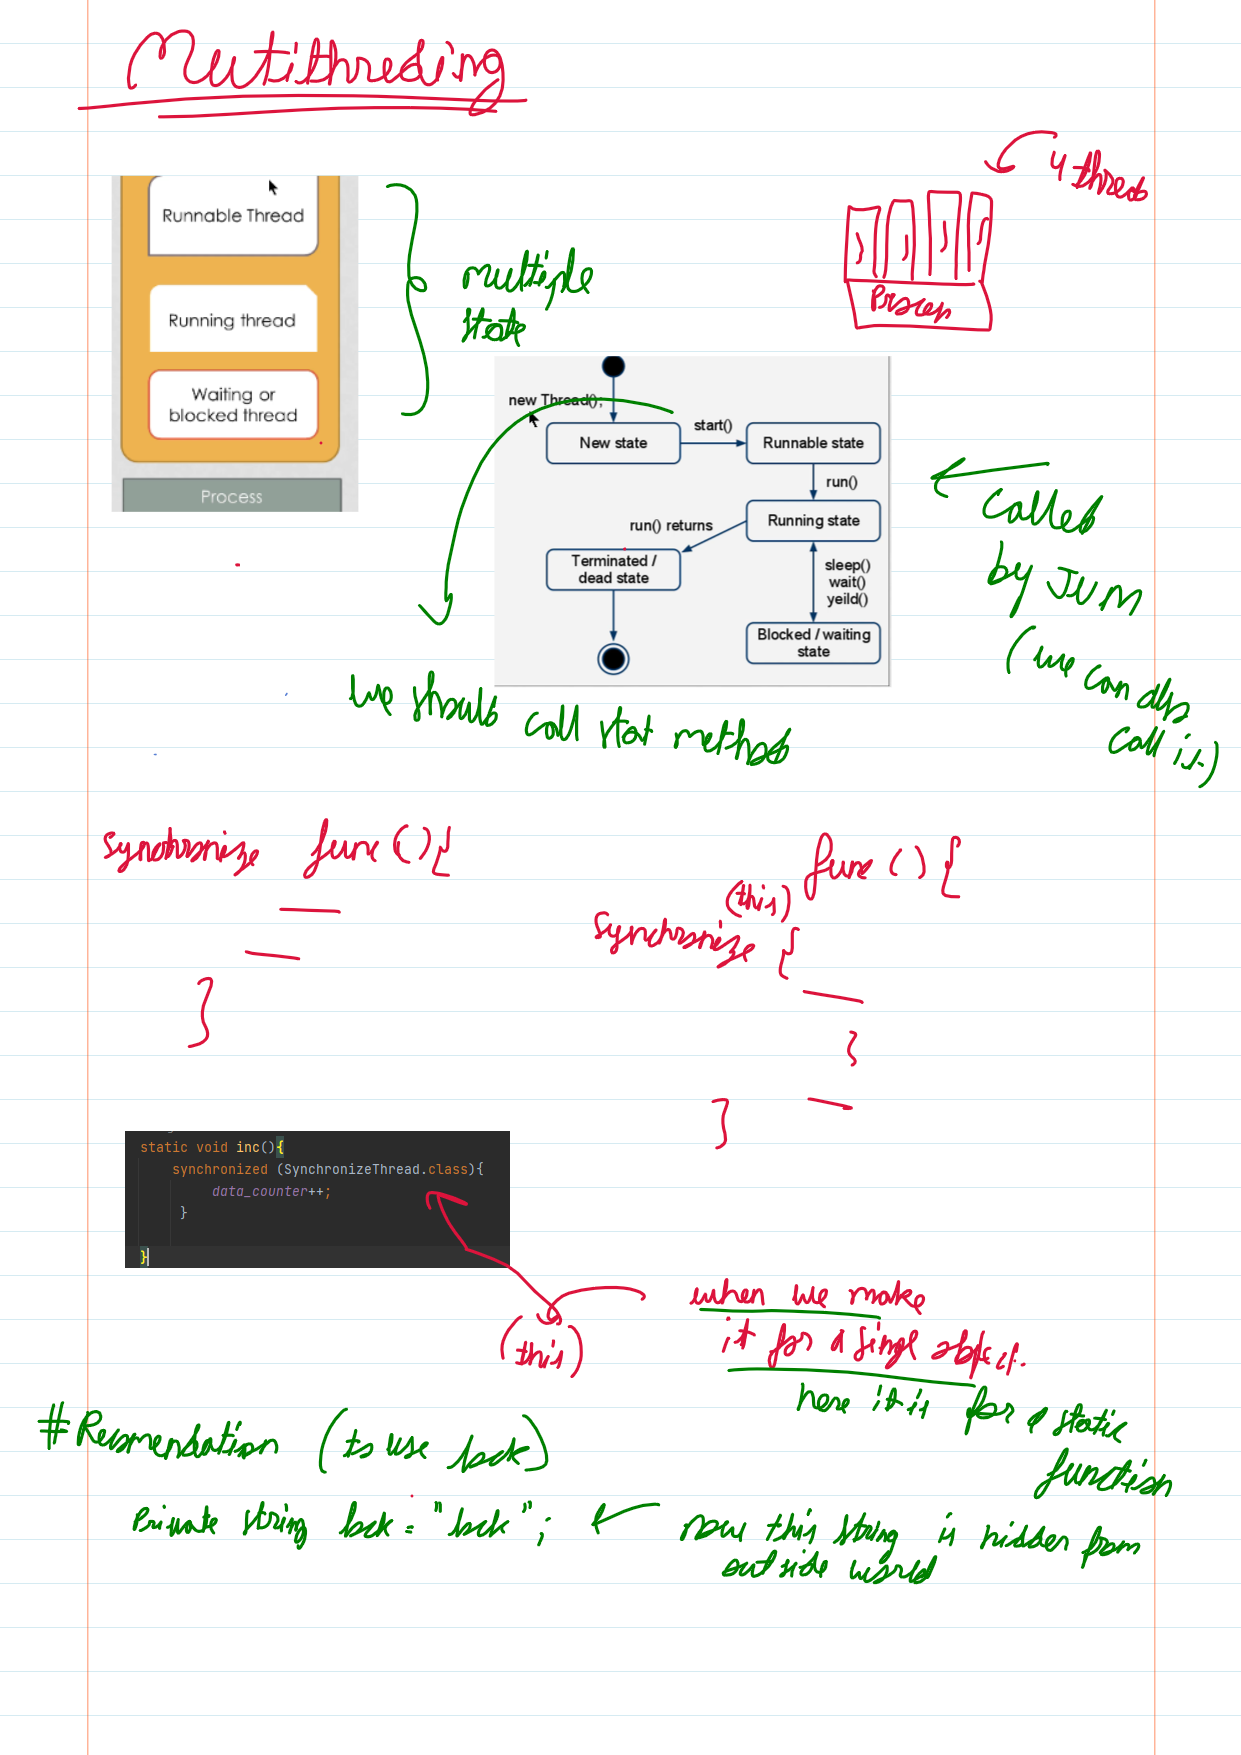 Mutithreding
Runnable Thread
Running thread
Waiting or
blocked thread
Process
multiple
state
4 thread
Process
new Thread();
New state
start()
Runnable state
run()
Running state
run() returns
Terminated /
dead state
sleep()
wait()
yeild()
Blocked / waiting
state
Called
by JVM
(we can also
call it)
we should call start method
Synchronize func () {
}
func () {
(this)
Synchronize {
}
}
static void inc(){
synchronized (SynchronizeThread.class){
data_counter++;
}
}
(this)
when we make
it for a single object.
here it is for a static
function
# Recomendation (to use lock)
Private string lock = "lock";
now this string is hidden from
outside world